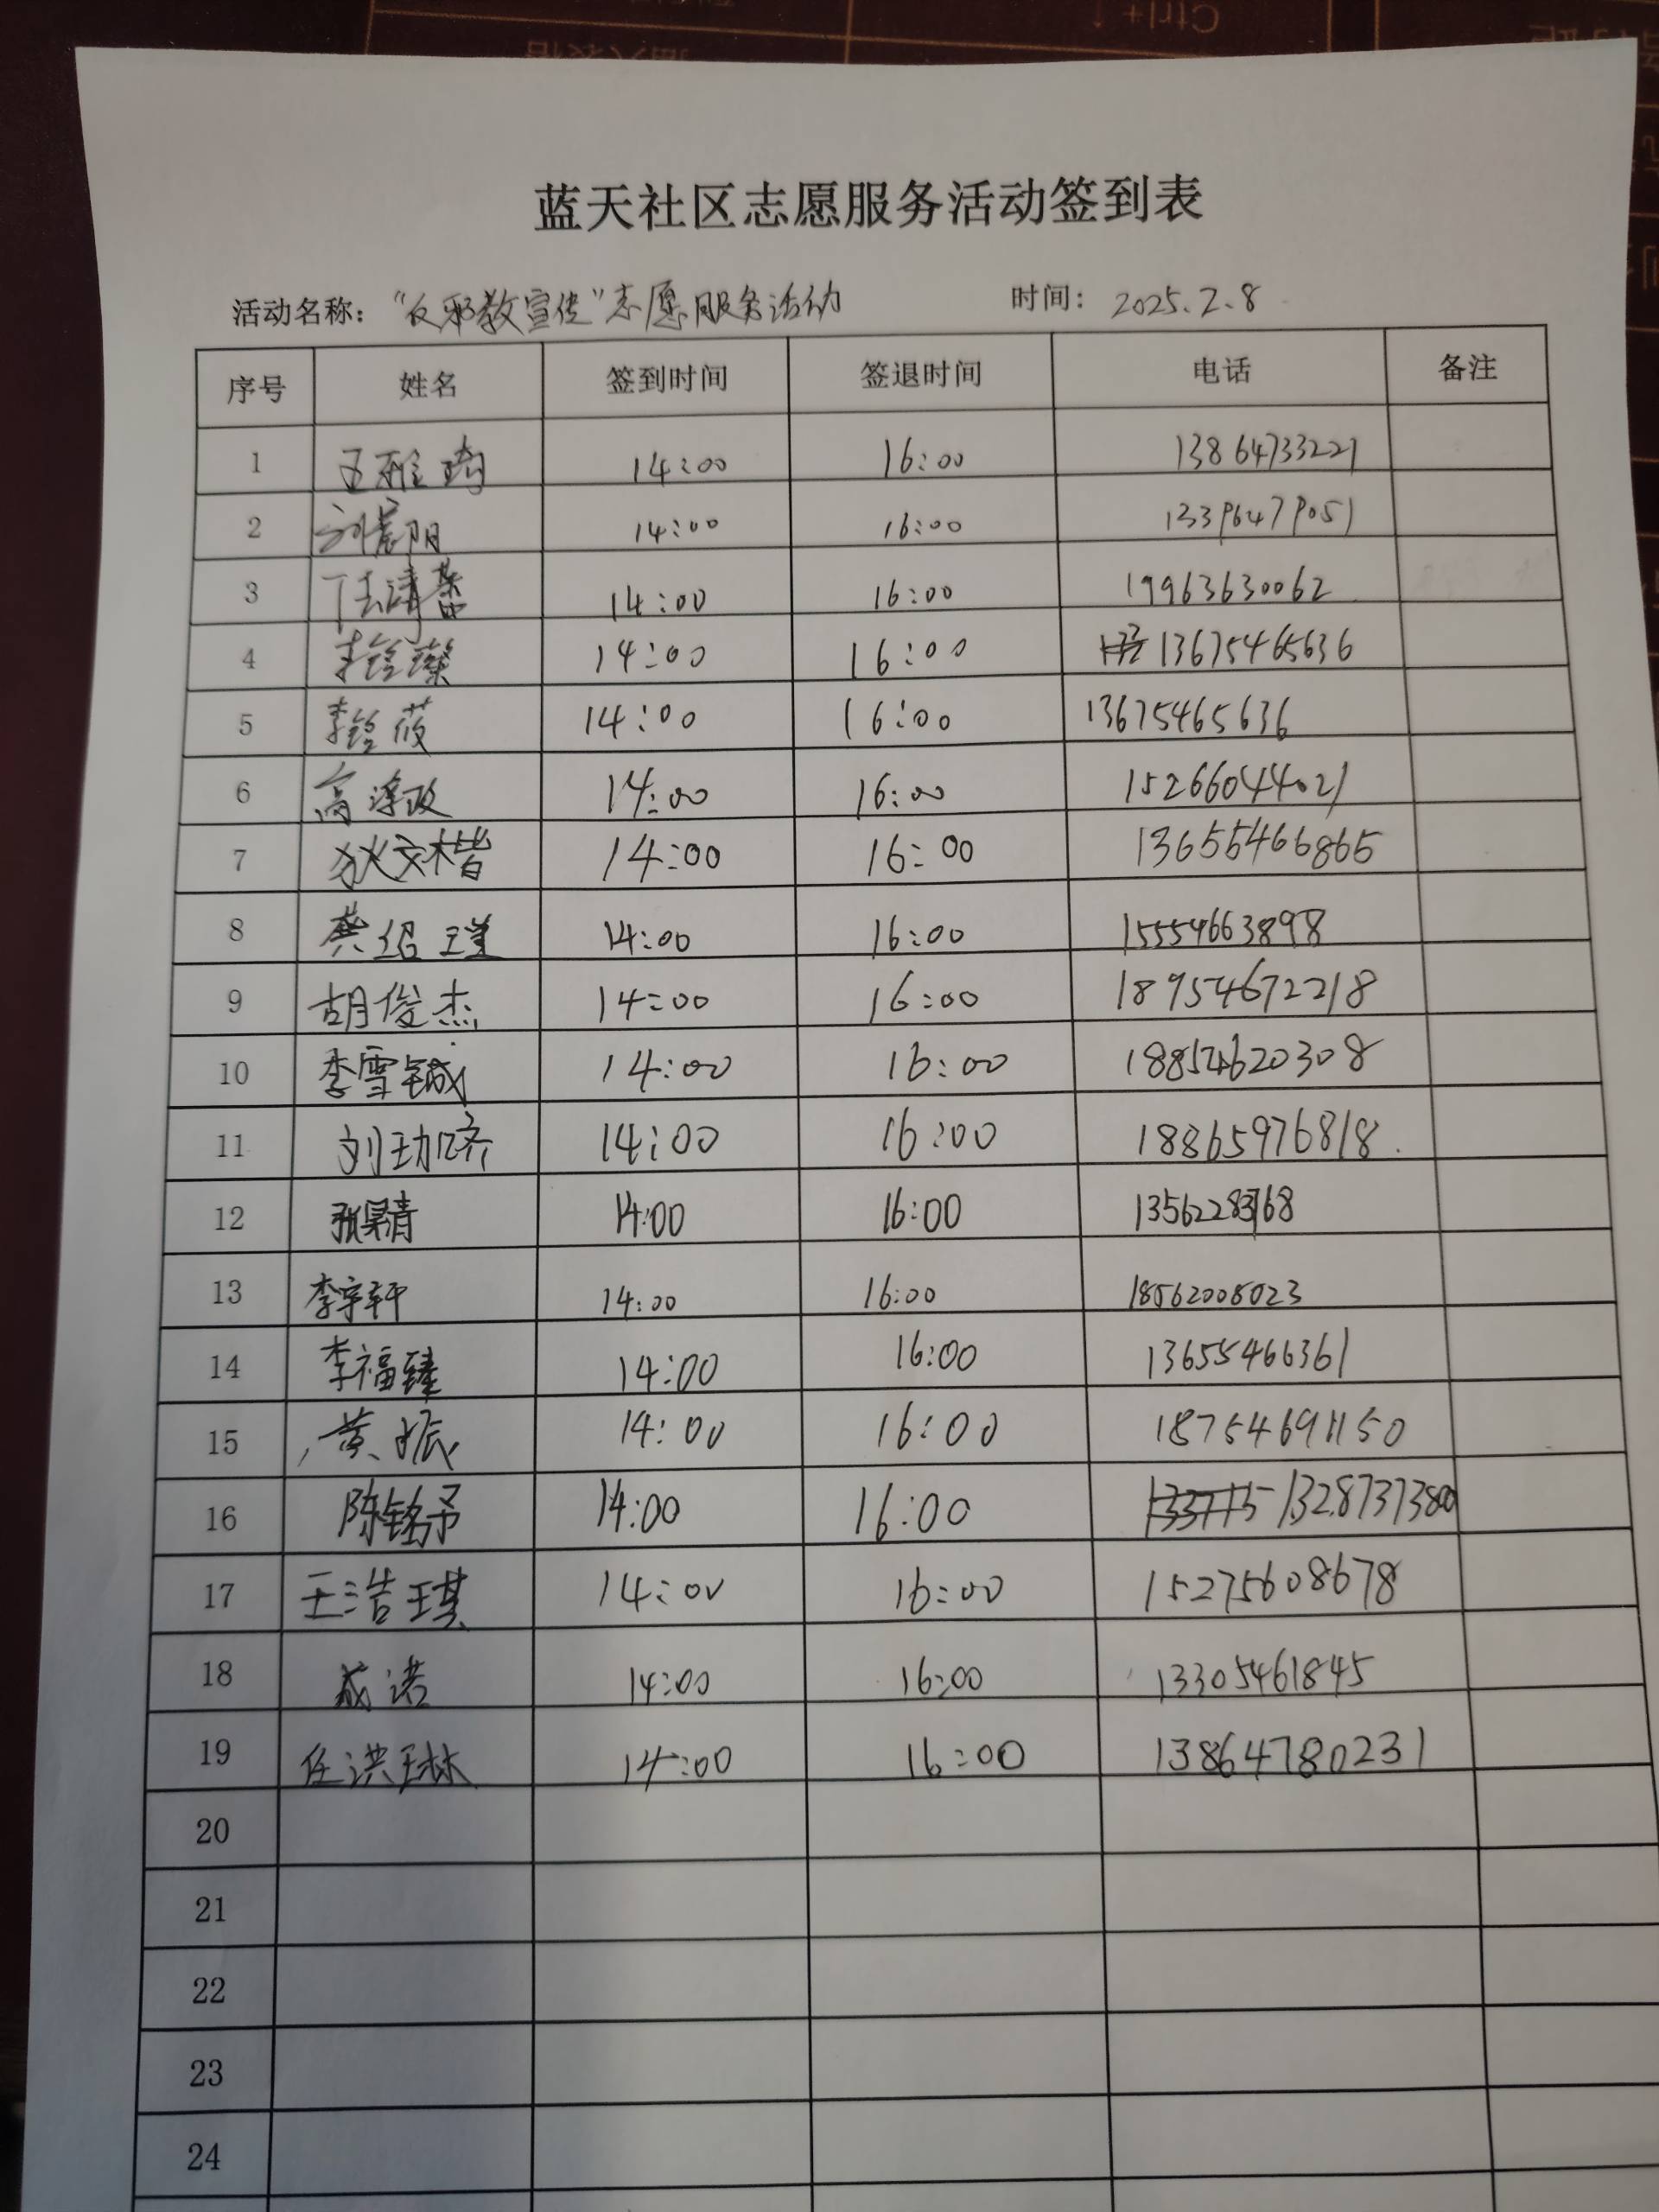 蓝天社区志愿服务活动签到表
活动名称：“反邪教宣传”志愿服务活动 时间：2025.2.8
序号 姓名 签到时间 签退时间 电话 备注
1 王雅琦 14:00 16:00 13864733221
2 刘晨阳 14:00 16:00 13396479051
3 14:00 16:00 19963630062
4 14:00 16:00 13675465636
5 李铨莜 14:00 16:00 13675465636
6 14:00 16:00 15266044021
7 狄文楷 14:00 16:00 13655466865
8 龚绍瑾 14:00 16:00 15554663898
9 胡俊杰 14:00 16:00 18954672218
10 李雪铖 14:00 16:00 18854620308
11 刘劲哜 14:00 16:00 18865976818
12 张昊清 14:00 16:00
13 李宇轩 14:00 16:00 18562008023
14 李福臻 14:00 16:00 13655466361
15 黄振 14:00 16:00 18754691150
16 陈铭予 14:00 16:00 13287373800
17 王浩琪 14:00 16:00 15275608678
18 成诺 14:00 16:00 13305461845
19 任洪琳 14:00 16:00 13864780231
20
21
22
23
24